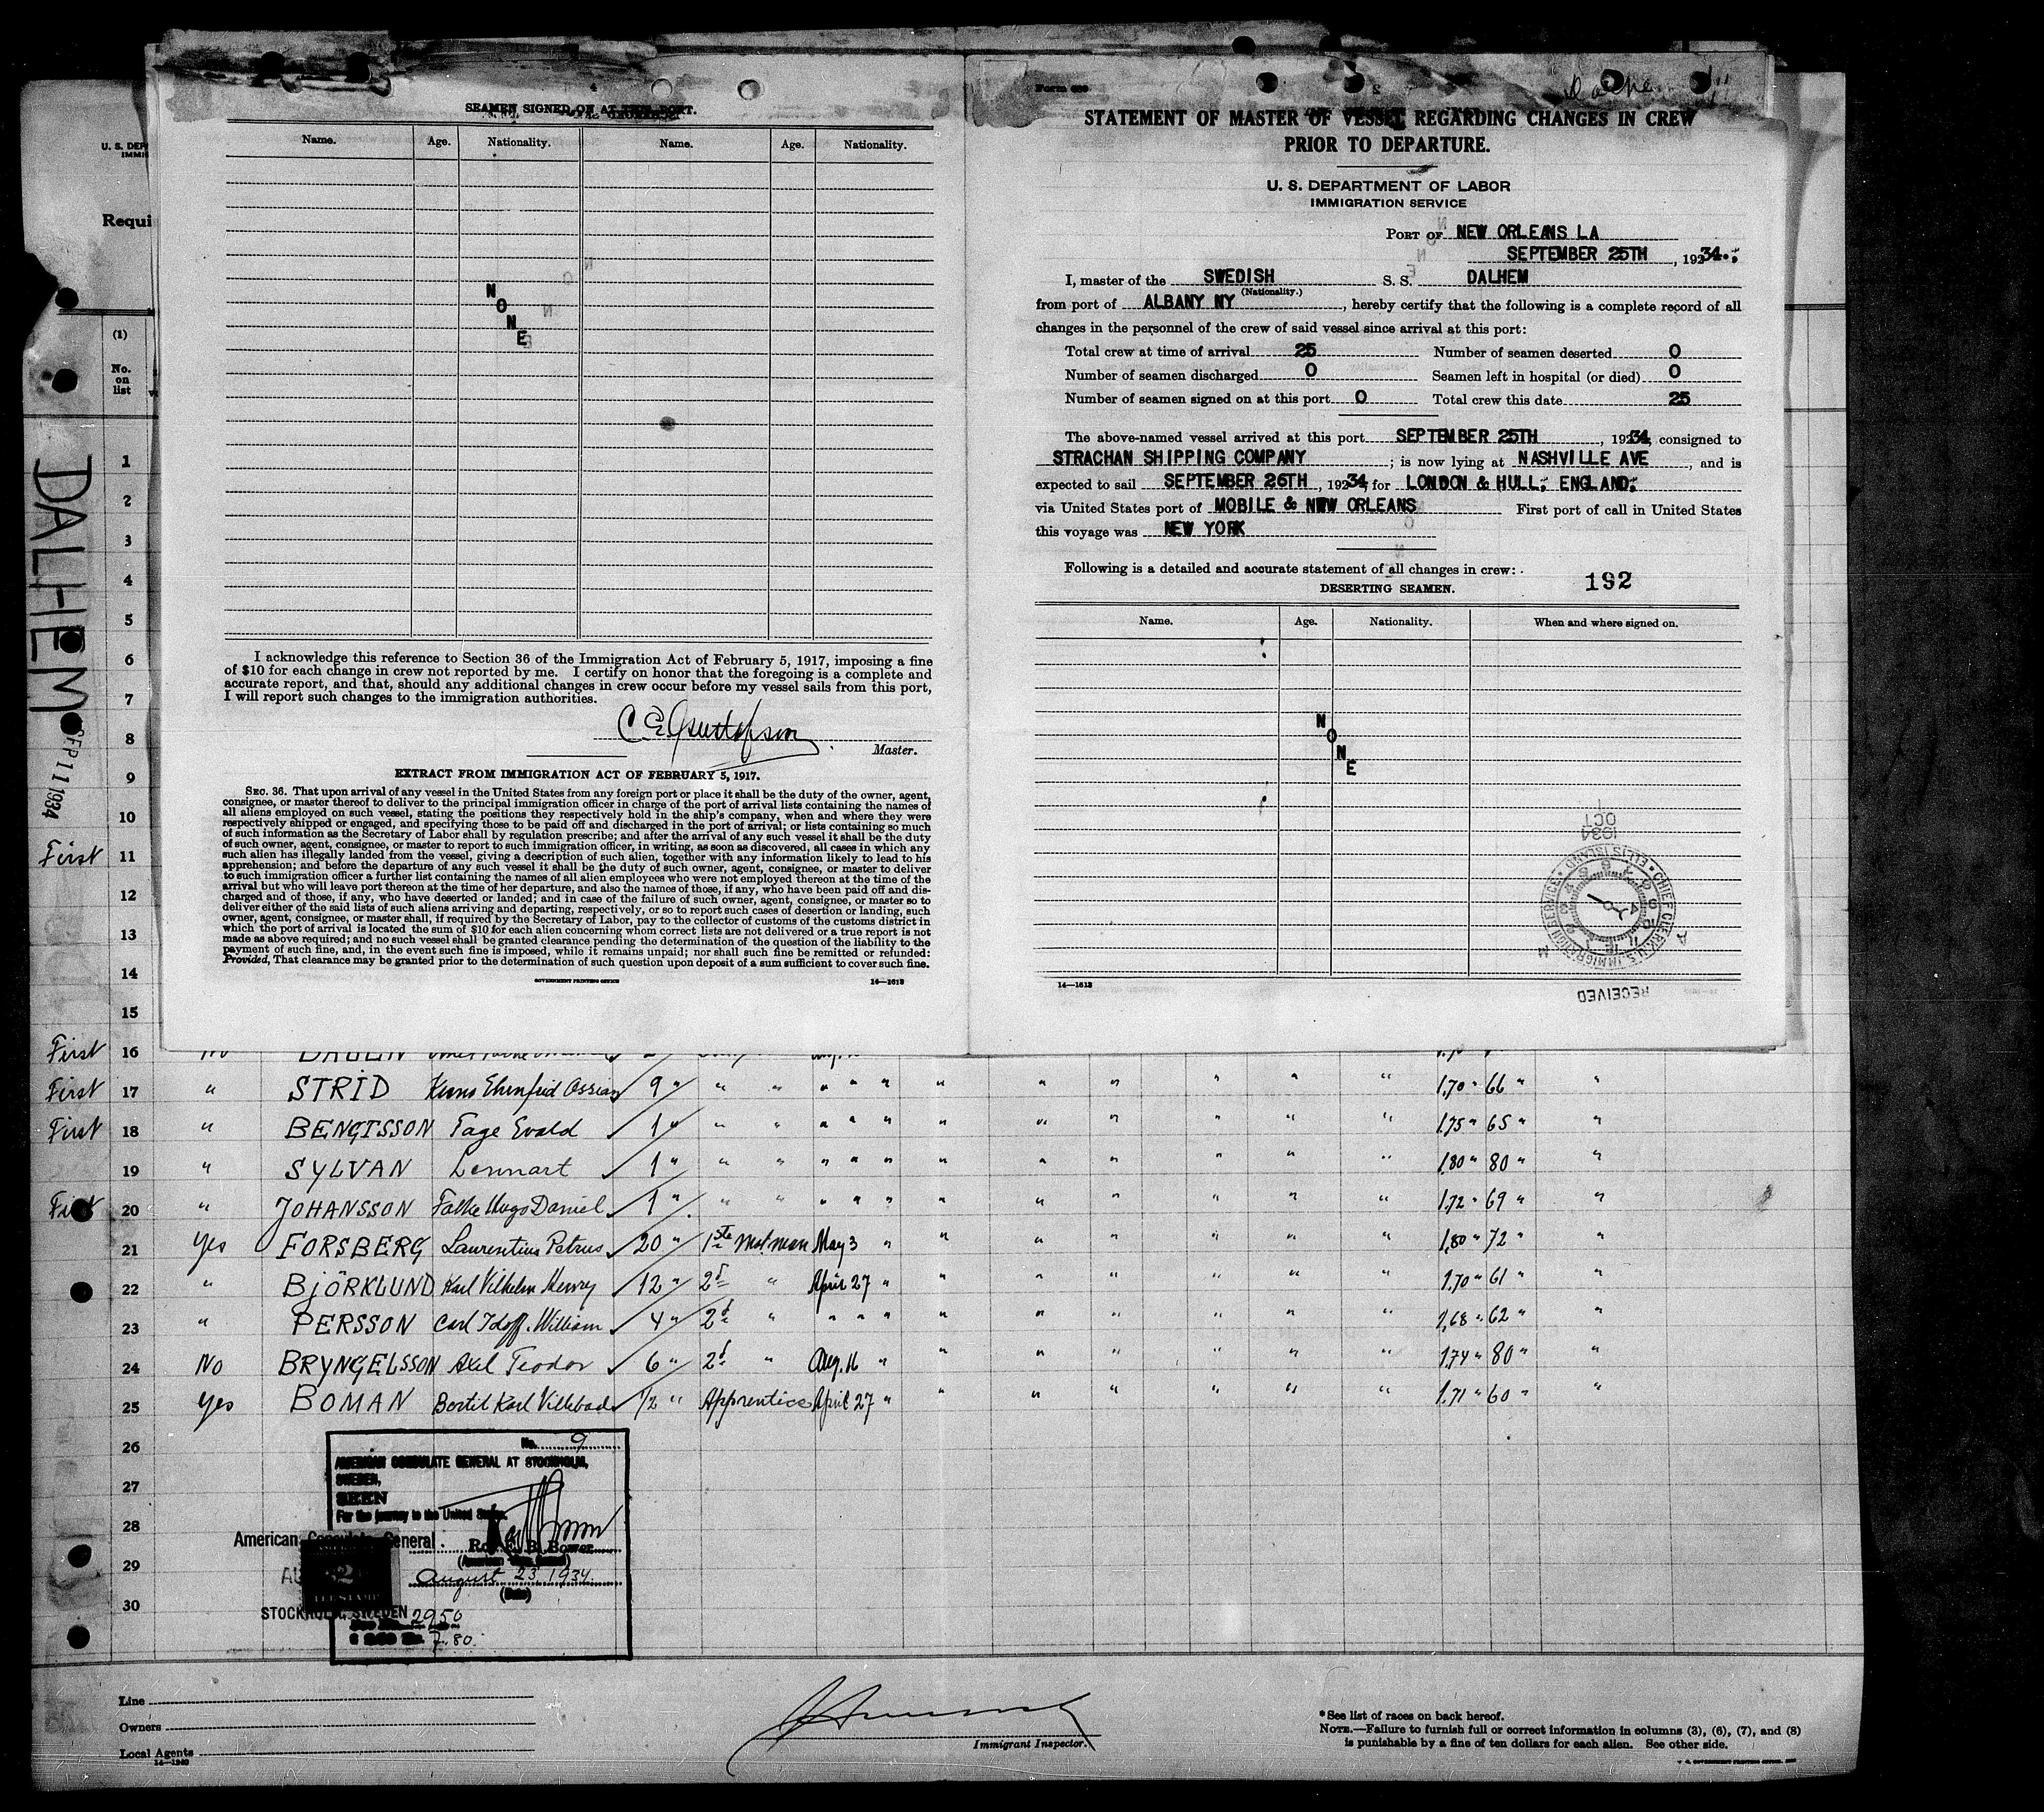 SEAMEN SIGNED ON AT THIS PORT.
Name. Age. Nationality. Name. Age. Nationality.
NONE
I acknowledge this reference to Section 36 of the Immigration Act of February 5, 1917, imposing a fine
of $10 for each change in crew not reported by me. I certify on honor that the foregoing is a complete and
accurate report, and that, should any additional changes in crew occur before my vessel sails from this port,
I will report such changes to the immigration authorities.
C E Gustafson
Master.
EXTRACT FROM IMMIGRATION ACT OF FEBRUARY 5, 1917.
SEC. 36. That upon arrival of any vessel in the United States from any foreign port or place it shall be the duty of the owner, agent,
consignee, or master thereof to deliver to the principal immigration officer in charge of the port of arrival lists containing the names of
all aliens employed on such vessel, stating the positions they respectively hold in the ship's company, when and where they were
respectively shipped or engaged, and specifying those to be paid off and discharged in the port of arrival; or lists containing so much
of such information as the Secretary of Labor shall by regulation prescribe; and after the arrival of any such vessel it shall be the duty
of such owner, agent, consignee, or master to report to such immigration officer, in writing, as soon as discovered, all cases in which any
such alien has illegally landed from the vessel, giving a description of such alien, together with any information likely to lead to his
apprehension; and before the departure of any such vessel it shall be the duty of such owner, agent, consignee, or master to deliver
to such immigration officer a further list containing the names of all alien employees who were not employed thereon at the time of the
arrival but who will leave port thereon at the time of her departure, and also the names of those, if any, who have been paid off and dis-
charged and of those, if any, who have deserted or landed; and in case of the failure of such owner, agent, consignee, or master so to
deliver either of the said lists of such aliens arriving and departing, respectively, or so to report such cases of desertion or landing, such
owner, agent, consignee, or master, shall, if required by the Secretary of Labor, pay to the collector of customs of the customs district in
which the port of arrival is located the sum of $10 for each alien concerning whom correct lists are not delivered or a true report is not
made as above required; and no such vessel shall be granted clearance pending the determination of the question of the liability to the
payment of such fine, and, in the event such fine is imposed, while it remains unpaid; nor shall such fine be remitted or refunded:
Provided, That clearance may be granted prior to the determination of such question upon deposit of a sum sufficient to cover such fine.
GOVERNMENT PRINTING OFFICE 14—1613
STATEMENT OF MASTER OF VESSEL REGARDING CHANGES IN CREW
PRIOR TO DEPARTURE.
U. S. DEPARTMENT OF LABOR
IMMIGRATION SERVICE
PORT OF NEW ORLEANS LA
SEPTEMBER 25TH, 19234
I, master of the SWEDISH S. S. DALHEM
(Nationality.)
from port of ALBANY NY, hereby certify that the following is a complete record of all
changes in the personnel of the crew of said vessel since arrival at this port:
Total crew at time of arrival 25 Number of seamen deserted 0
Number of seamen discharged 0 Seamen left in hospital (or died) 0
Number of seamen signed on at this port 0 Total crew this date 25
The above-named vessel arrived at this port SEPTEMBER 25TH, 19234, consigned to
STRACHAN SHIPPING COMPANY; is now lying at NASHVILLE AVE, and is
expected to sail SEPTEMBER 26TH, 19234, for LONDON & HULL; ENGLAND;
via United States port of MOBILE & NEW ORLEANS First port of call in United States
this voyage was NEW YORK
Following is a detailed and accurate statement of all changes in crew:
192
DESERTING SEAMEN.
Name. Age. Nationality. When and where signed on.
NONE
OCT
1934
CHIEF CLERK U.S. IMMIGRATION SERVICE ELLIS ISLAND
RECEIVED
14—1613
U. S. DEP
IMMI
Requi
(1)
No. on list
DALHEM
SEP 11 1934
1
2
3
4
5
6
7
8
9
10
First 11
12
13
14
15
First 16
First 17 " STRID 9 " " " " " " " " " " " " 1.70 " 66 " "
First 18 " BENGTSSON Tage Evald 1 " " " " " " " " " " " " 1.75 " 65 " "
19 " SYLVAN Lennart 1 " " " " " " " " " " " " 1.80 " 80 " "
First 20 " JOHANSSON Folke Hugo Daniel 1 " " " " " " " " " " " " 1.72 " 69 " "
21 Yes FORSBERG Laurentius Petrus 20 " 1ste Motman May 3 " " " " " " " 1.80 " 72 " "
22 " BJÖRKLUND Karl Vilhelm Henry 12 " 2d " April 27 " " " " " " " 1.70 " 61 " "
23 " PERSSON Carl William 4 " 2d " " " " " " " " " " 1.68 " 62 " "
24 No BRYNGELSSON Axel Teodor 6 " 2d " Aug. 16 " " " " " " " 1.74 " 80 " "
25 Yes BOMAN Bertil Karl Villebad 1/2 " Apprentice April 27 " " " " " " " 1.71 " 60 " "
26
27
28
29
30
No. 9
AMERICAN CONSULATE GENERAL AT STOCKHOLM,
SWEDEN,
SEEN
For the journey to the United States.
American Consulate General
B. Bower
August 23, 1934.
(Date)
STOCKHOLM, SWEDEN
2950
7.80
Line
Owners
Local Agents
14—1240
Immigrant Inspector.
*See list of races on back hereof.
NOTE.—Failure to furnish full or correct information in columns (3), (6), (7), and (8)
is punishable by a fine of ten dollars for each alien. See other side.